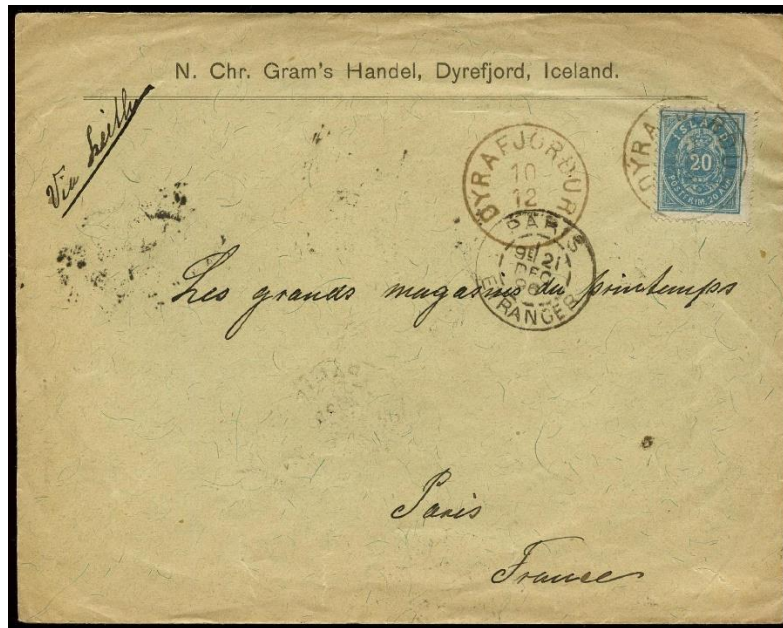 N. Chr. Gram's Handel, Dyrefjord, Iceland.
Via Leith
DÝRAFJÖRÐUR
10
12
DÝRAFJÖRÐUR
ÍSLAND
20
PARIS
21
DEC
ETRANGER
Les grands magasins du printemps
Paris
France